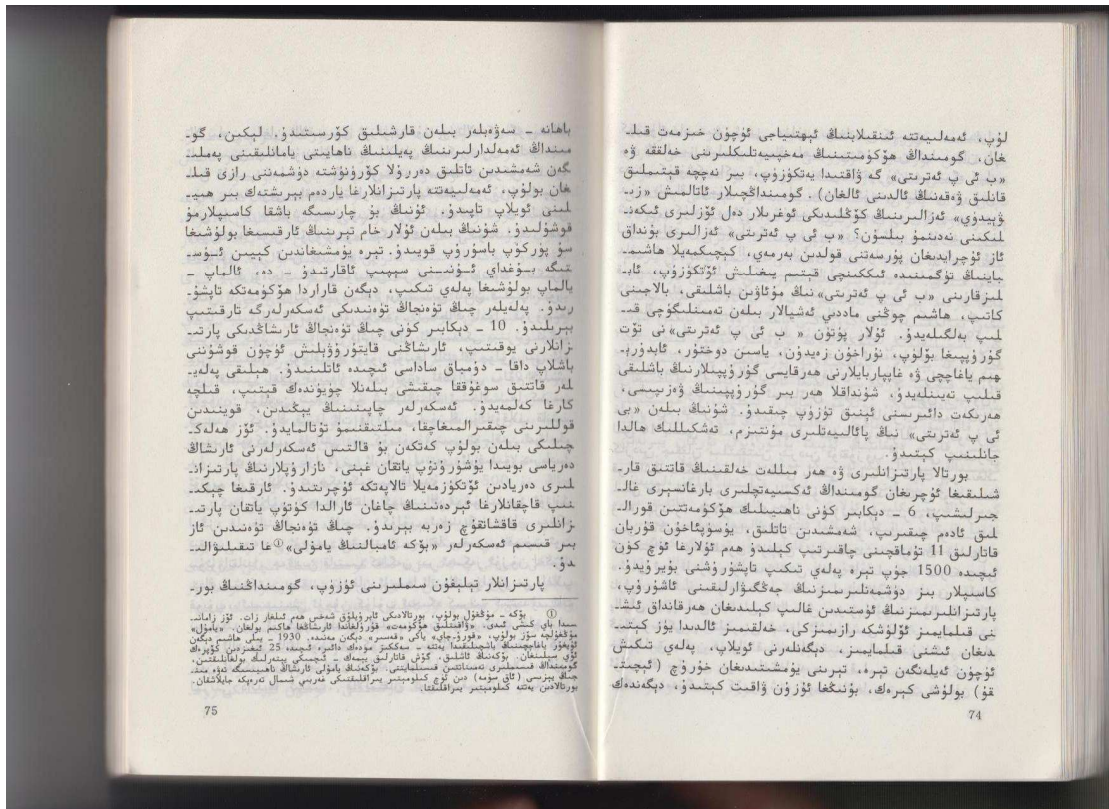 لۇپ، ئەمەلىيەتتە ئىنقىلابنىڭ ئېھتىياجى ئۈچۈن خىزمەت قىلـ
غان، گومىنداڭ ھۆكۈمىتىنىڭ مەخپىيەتلىكلىرىنى خەلققە ۋە
«ب ئى پ ئەترىتى» گە ۋاقتىدا يەتكۈزۈپ، بىر نەچچە قېتىملىق
قانلىق ۋەقەنىڭ ئالدىنى ئالغان). گومىنداڭچىلار ئاتالمىش «زىـ
ۋېيدۈي» ئەزالىرىنىڭ كۆڭلىدىكى ئوغرىلار دەل ئۆزلىرى ئىكەنـ
لىكىنى نەدىنمۇ بىلسۇن؟ «ب ئى پ ئەترىتى» ئەزالىرى بۇنداق
ئاز ئۇچرايدىغان پۇرسەتنى قولدىن بەرمەي، كېچىكمەيلا ھاشىمـ
باينىڭ تۈگمىنىدە ئىككىنچى قېتىم يىغىلىش ئۆتكۈزۈپ، ئابـ
لىزقارىنى «ب ئى پ ئەترىتى»نىڭ مۇئاۋىن باشلىقى، بالاجىنى
كاتىپ، ھاشىم چوڭنى ماددىي ئەشيالار بىلەن تەمىنلىگۈچى قىـ
لىپ بەلگىلەيدۇ. ئۇلار پۈتۈن « ب ئى پ ئەترىتى»نى تۆت
گۇرۇپپىغا بۆلۈپ، نۇراخۇن زەيدۇن، ياسىن دوختۇر، ئابدۇرېـ
ھىم ياغاچچى ۋە غاپپاربايلارنى ھەرقايسى گۇرۇپپىلارنىڭ باشلىقى
قىلىپ تەيىنلەيدۇ، شۇنداقلا ھەر بىر گۇرۇپپىنىڭ ۋەزىپىسى،
ھەرىكەت دائىرىسىنى ئېنىق تۈزۈپ چىقىدۇ. شۇنىڭ بىلەن «بى
ئى پ ئەترىتى» نىڭ پائالىيەتلىرى مۇنتىزم، تەشكىللىك ھالدا
جانلىنىپ كېتىدۇ.
بورتالا پارتىزانلىرى ۋە ھەر مىللەت خەلقىنىڭ قاتتىق قارـ
شىلىقىغا ئۇچرىغان گومىنداڭ ئەكسىيەتچىلىرى بارغانسېرى غالـ
جىرلىشىپ، 6 ـ دېكابىر كۈنى ناھىيىلىك ھۆكۈمەتتىن قورالـ
لىق ئادەم چىقىرىپ، شەمشىدىن تاتلىق، يۈسۈپئاخۇن قۇربان
قاتارلىق 11 تۇماقچىنى چاقىرتىپ كېلىدۇ ھەم ئۇلارغا ئۈچ كۈن
ئىچىدە 1500 جۈپ تېرە پەلەي تىكىپ تاپشۇرۇشنى بۇيرۇيدۇ.
كاسىپلار بىز دۈشمەنلىرىمىزنىڭ جەڭگىۋارلىقىنى ئاشۇرۇپ،
پارتىزانلىرىمىزنىڭ ئۈستىدىن غالىپ كېلىدىغان ھەرقانداق ئىشـ
نى قىلمايمىز ئۆلۈشكە رازىمىزكى، خەلقىمىز ئالدىدا يۈز كېتىـ
دىغان ئىشنى قىلمايمىز، دېگەنلەرنى ئويلاپ، پەلەي تىكىش
ئۈچۈن ئەيلەنگەن تېرە، تېرىنى يۇمشىتىدىغان خۇرۇچ ( ئېچىتـ
قۇ) بولۇشى كېرەك، بۇنىڭغا ئۇزۇن ۋاقىت كېتىدۇ، دېگەندەك
74
باھانە ـ سەۋەبلەر بىلەن قارشىلىق كۆرسىتىدۇ. لېكىن، گوـ
مىنداڭ ئەمەلدارلىرىنىڭ پەيلىنىڭ ناھايىتى يامانلىقىنى پەملىـ
گەن شەمشىدىن تاتلىق دەررۇلا كۆرۈنۈشتە دۈشمەننى رازى قىلـ
غان بولۇپ، ئەمەلىيەتتە پارتىزانلارغا ياردەم بېرىشتەك بىر ھىيـ
لىنى ئويلاپ تاپىدۇ. ئۇنىڭ بۇ چارىسىگە باشقا كاسىپلارمۇ
قوشۇلىدۇ. شۇنىڭ بىلەن ئۇلار خام تېرىنىڭ ئارقىسىغا بولۇشىغا
سۇ پۈركۈپ باسۇرۇپ قويىدۇ. تېرە يۇمشىغاندىن كېيىن ئۈسـ
تىگە بۇغداي ئۇنىنى سېپىپ ئاقارتىدۇ ـ دە، ئالماپ ـ
يالماپ بولۇشىغا پەلەي تىكىپ، دېگەن قاراردا ھۆكۈمەتكە تاپشۇـ
رىدۇ. پەلەيلەر چىڭ تۈەنجاڭ تۈەنىدىكى ئەسكەرلەرگە تارقىتىپ
بېرىلىدۇ. 10 ـ دېكابىر كۈنى چىڭ تۈەنجاڭ ئارىشاڭدىكى پارتىـ
زانلارنى يوقىتىپ، ئارىشاڭنى قايتۇرۇۋېلىش ئۈچۈن قوشۇننى
باشلاپ داقا ـ دۇمباق ساداسى ئىچىدە ئاتلىنىدۇ. ھېلىقى پەلەيـ
لەر قاتتىق سوغۇققا چىقىشى بىلەنلا چويۇندەك قېتىپ، قىلچە
كارغا كەلمەيدۇ. ئەسكەرلەر چاپىنىنىڭ يېڭىدىن، قوينىدىن
قوللىرىنى چىقىرالمىغاچقا، مىلتىقنىمۇ تۇتالمايدۇ. ئۆز ھەلەكـ
چىلىكى بىلەن بولۇپ كەتكەن بۇ قالتىس ئەسكەرلەرنى ئارىشاڭ
دەرياسى بويىدا يۇشۇرۇنۇپ ياتقان غېنى، نازارۇپلارنىڭ پارتىزانـ
لىرى دەريادىن ئۆتكۈزمەيلا تالاپەتكە ئۇچرىتىدۇ. ئارقىغا چېكىـ
نىپ قاچقانلارغا ئېرەدىنىڭ چاغان ئارالدا كۈتۈپ ياتقان پارتىـ
زانلىرى قاقشاتقۇچ زەربە بېرىدۇ. چىڭ تۈەنجاڭ تۈەنىدىن ئاز
بىر قىسىم ئەسكەرلەر «بۆكە ئامبالنىڭ يامۇلى»①غا تىقىلىۋالىـ
دۇ.
پارتىزانلار تېلېفون سىملىرىنى ئۈزۈپ، گومىنداڭنىڭ بورـ
① بۆكە ـ موڭغۇل بولۇپ، بورتالادىكى ئابرۇيلۇق شەخس ھەم ئىلغار زات. ئۆز زامانىـ
سىدا باي كىشى ئىدى. «ۋاقىتلىق ھۆكۈمەت» قۇرۇلغاندا ئارىشاڭغا ھاكىم بولغان. «يامۇل»
موڭغۇلچە سۆز بولۇپ، «قورۇـجاي» ياكى «قەسىر» دېگەن مەنىدە. 1930 ـ يىلى ھاشىم دېگەن
ئۇيغۇر ياغاچچىنىڭ باشچىلىقىدا يەتتە ـ سەككىز مودەك دائىرە ئىچىدە 25 ئېغىزدىن كۆپرەك
ئۆي سېلىنغان. بۆكەنىڭ ئاشلىق، گۆش قاتارلىق يېمەك ـ ئىچمىكى يېتەرلىك بولغانلىقتىن،
گومىنداڭ قىسىملىرى تەمىناتتىن قىسىلمايتتى. بۆكەنىڭ يامۇلى ئارىشاڭ ناھىيىسىگە تەۋە مىڭـ
جىڭ يېزىسى (ئاق سۈمە) دىن ئۈچ كىلومېتىر يىراقلىقتىكى غەربىي شىمال تەرەپكە جايلاشقان.
بورتالادىن يەتتە كىلومېتىر يىراقلىقتا.
75